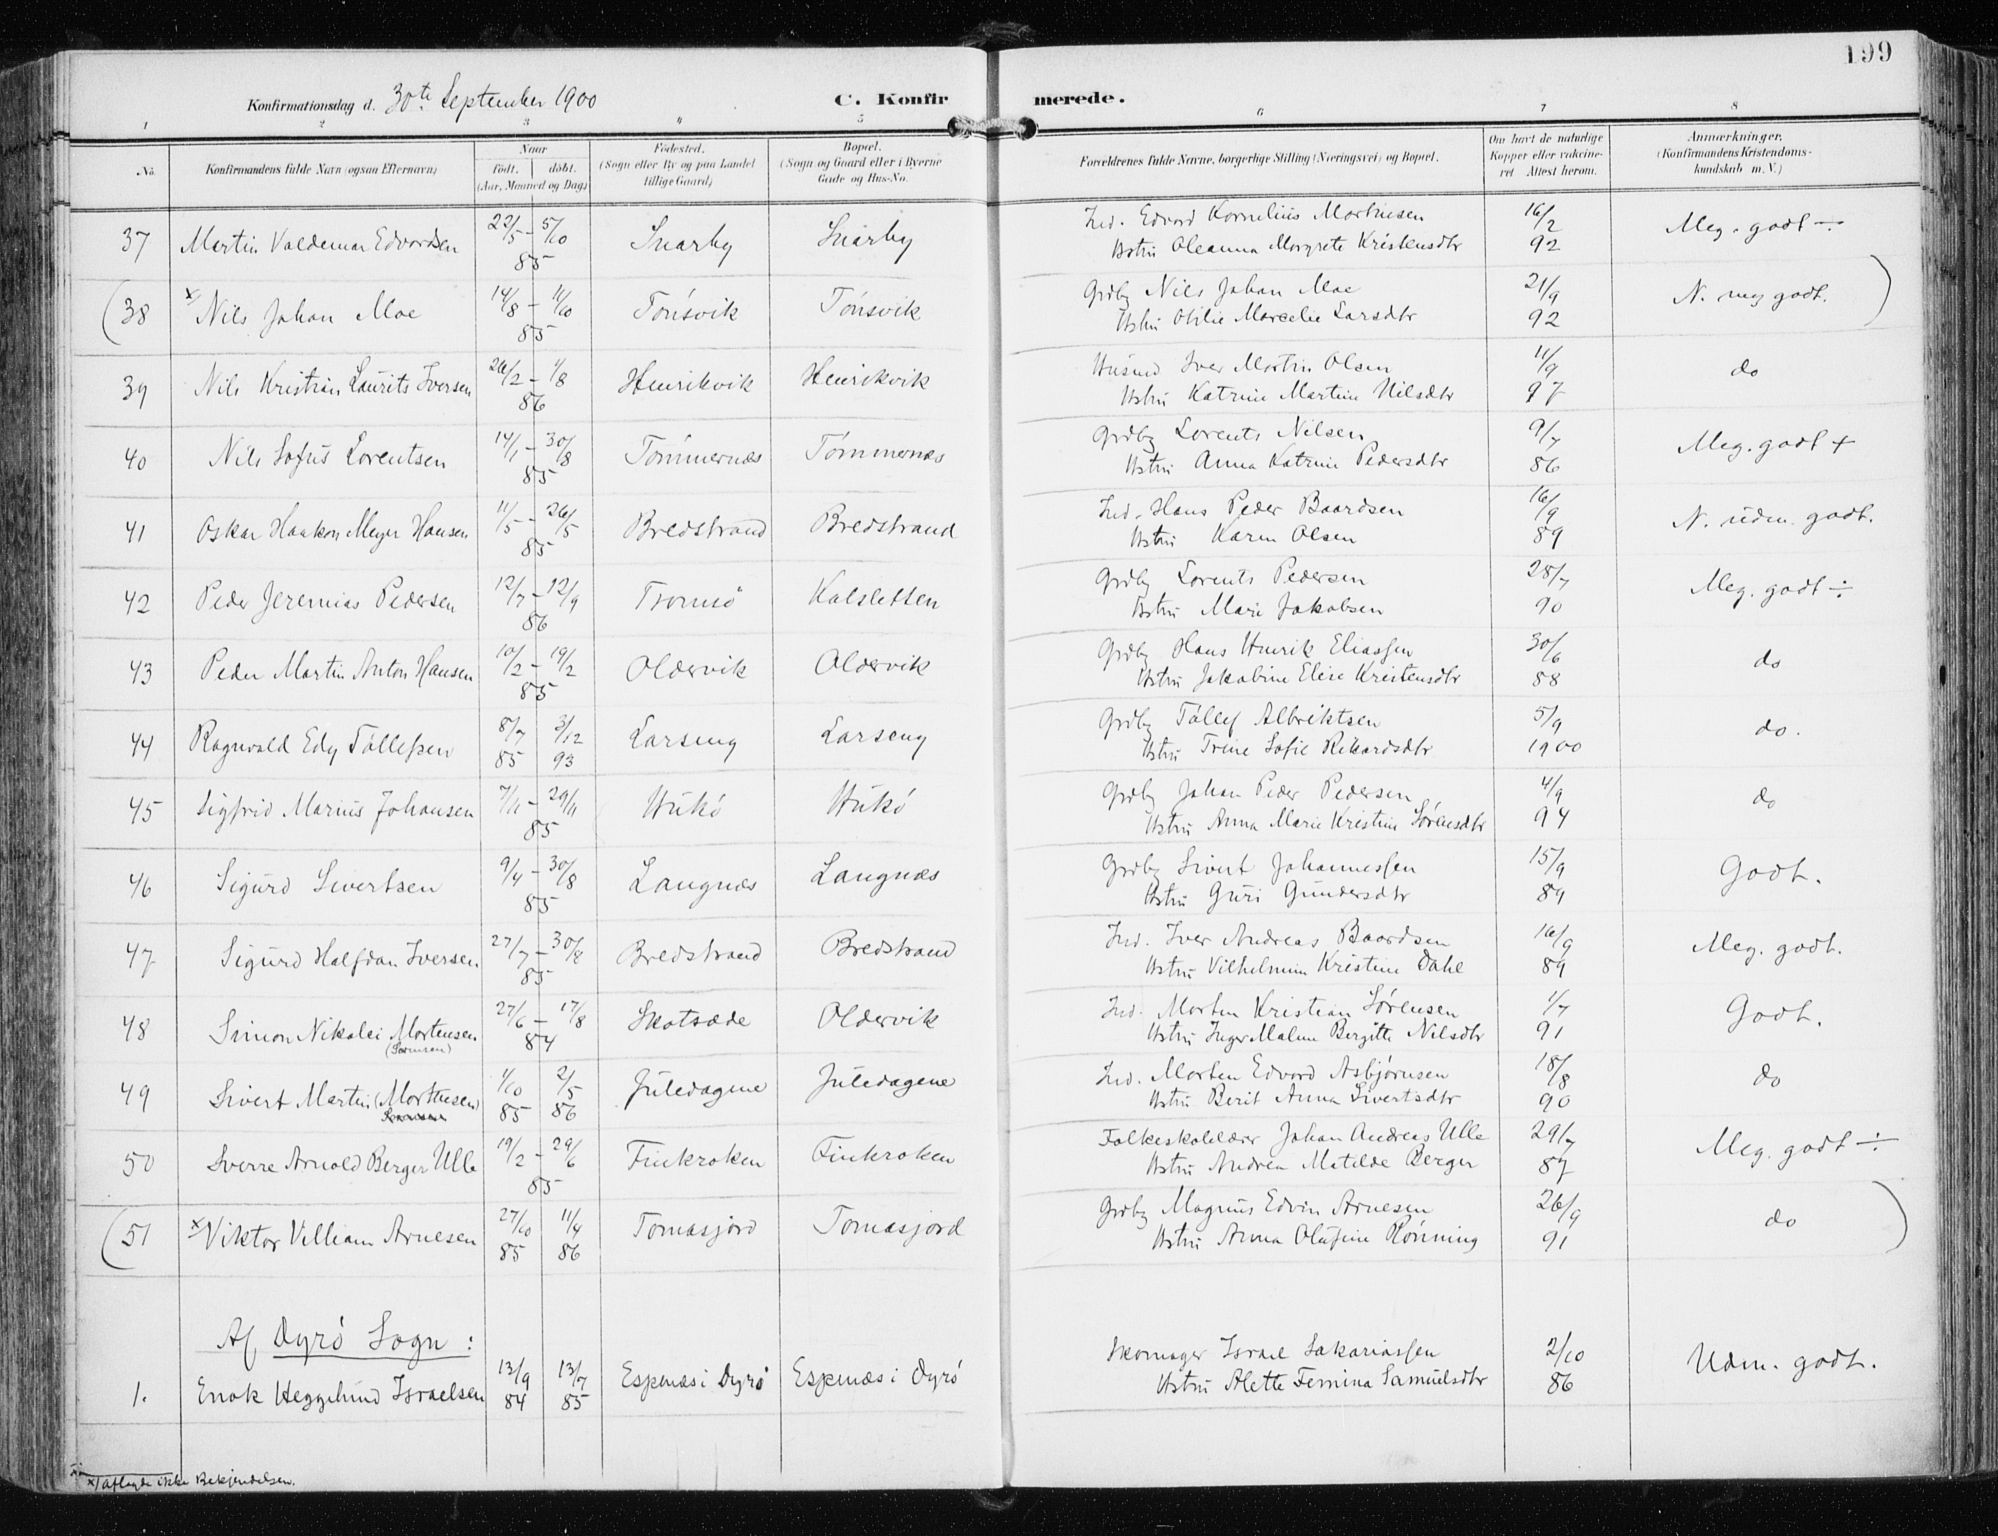 199
Konfirmationsdag d. 30te September 1900
C. Konfirmerede.
1 2 3 4 5 6 7 8
No. Konfirmandens fulde Navn (ogsaa Efternavn) Naar født. døbt. (Aar, Maaned og Dag) Fødested. (Sogn eller By og paa Landet tillige Gaard) Bopæl. (Sogn og Gaard eller i Byerne Gade og Hus-No. Forældrenes fulde Navne, borgerlige Stilling (Næringsvei) og Bopæl. Om havt de naturlige Kopper eller vakcineret Attest herom. Anmærkninger. (Konfirmandens Kristendomskundskab m. V.)
37 Martin Valdemar Edvardsen 22/5 - 5/10 85 Snarby Snarby Ind. Edvard Kornelius Martinsen 16/2 92 Meg. godt ÷
Hstru Oleanna Margrete Kristensdtr
(38 x Nils Johan Moe 14/8 - 11/10 85 Tønsvik Tønsvik Grdbg Nils Johan Moe 21/9 92 N. meg godt. )
Hstru Otilie Marcelie Larsdtr
39 Nils Kristian Laurits Iversen 26/2 - 1/8 86 Henrikvik Henrikvik Husmd Iver Martin Olsen 11/9 97 do
Hstru Katrine Martine Nilsdtr
40 Nils Sofus Lorentsen 14/1 - 30/8 85 Tømmernæs Tømmernæs Grdbg Lorents Nilsen 9/7 86 Meg. godt +
Hstru Anna Katrine Pedersdtr
41 Oskar Haakon Meyer Hansen 11/5 - 26/5 85 Bredstrand Bredstrand Ind. Hans Peder Baardsen 16/9 89 N. udm. godt.
Hstru Karen Olsen
42 Peder Jeremias Pedersen 12/7 - 12/9 86 Tromsø Kalsletten Grdbg Lorents Pedersen 28/7 90 Meg. godt ÷
Hstru Marie Jakobsen
43 Peder Martin Anton Hansen 10/2 - 19/2 85 Oldervik Oldervik Grdbg Hans Henrik Eliassen 30/6 88 do
Hstru Jakobine Elise Kristensdtr
44 Ragnvald Edy Tøllefsen 8/7 85 3/12 93 Larseng Larseng Grdbg Tøllef Albriktsen 5/9 1900 do.
Hstru Trine Sofie Rikardsdtr
45 Sigfrid Marius Johansen 7/11 - 29/11 85 Hukø Hukø Grdbg Johan Peder Pedersen 4/9 94 do
Hstru Anna Marie Kristine Sørensdtr
46 Sigurd Sivertsen 9/4 - 30/8 85 Langnæs Langnæs Grdbg Sivert Johannessen 15/9 89 Godt.
Hstru Guri Gundersdtr
47 Sigurd Halfdan Iversen 27/7 - 30/8 85 Bredstrand Bredstrand Ind. Iver Andreas Baardsen 16/9 89 Meg. godt.
Hstru Vilhelmine Kristine Dahl
48 Simon Nikolai Mortensen 27/6 - 17/8 84 Skotsæde Oldervik Ind. Morten Kristian Sørensen 1/7 91 Godt.
(Sørensen) Hstru Inger Malene Bergitte Nilsdtr
49 Sivert Martin (Morthesen) 1/10 85 2/5 86 Juledagene Juledagene Ind. Morten Edvard Asbjørnsen 18/8 90 do
Hstru Berit Anna Sivertsdtr
50 Sverre Arnold Berger Ulle 19/2 - 29/6 85 Finkroken Finkroken Folkeskolelærer Johan Andreas Ulle 29/7 87 Meg. godt ÷
Hstru Andrea Matilde Berger
(51 x Viktor Villiam Arnesen 27/10 85 11/4 86 Tomasjord Tomasjord Grdbg Magnus Edvin Arnesen 26/9 91 do )
Hstru Anna Olufine Rønning
Af Dyrø Sogn :
1. Enok Heggelund Israelsen 13/9 84 13/7 85 Espenæs i Dyrø Espenæs i Dyrø Skomager Israel Sakariassen 2/10 86 Udm. godt.
Hstru Alette Femina Samuelsdtr
x) aflagde ikke Bekjendelsen.